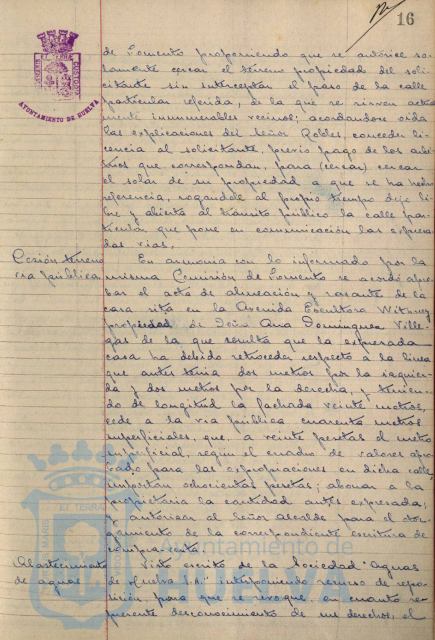 16
AYUNTAMIENTO DE HUELVA
de Fomento proponiendo que se autorice so-
lamente cercar el terreno propiedad del soli-
citante sin interceptar el paso de la calle
particular referida, de la que se sirven actual
mente innumerables vecinos; acordandose oida
las explicaciones del Señor Robles, conceder li-
cencia al solicitante, previo pago de los arbi-
trios que correspondan, para (cercar) cercar
el solar de su propiedad a que se ha hecho
referencia, rogandole al propio tiempo deje li-
bre y abierta al tránsito público la calle par-
ticular que pone en comunicación las expresa-
das vias.
Cesión terreno
via pública
En armonia con lo informado por la
misma Comisión de Fomento se acordó apro-
bar el acta de alineación y rasante de la
casa sita en la Avenida Escultora Withney
propiedad de Doña Ana Dominguez Ville-
gas de la que resulta que la expresada
casa ha debido retroceder respecto a la linea
que antes tenia dos metros por la izquier-
da y dos metros por la derecha, y tenien-
do de longitud la fachada veinte metros,
cede a la via pública cuarenta metros
superficiales, que, a veinte pesetas el metro
superficial, según el cuadro de valores apro-
bado para las expropiaciones en dicha calle,
importan ochocientas pesetas; abonar a la
propietaria la cantidad antes expresada;
y autorizar al Señor Alcalde para el otor-
gamiento de la correspondiente escritura de
compra-venta.
Abastecimiento
de aguas
Visto escrito de la Sociedad "Aguas
de Huelva S.A." interponiendo recurso de repo-
sición para que se revoque, en cuanto re-
presente desconocimiento de sus derechos, el
Ayuntamiento de